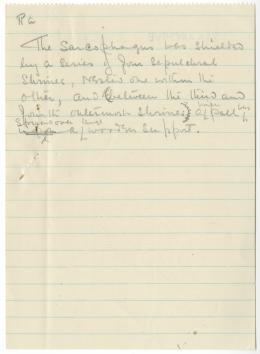 RC
The Sarcophagus was shielded
by a series of four Sepulchral
Shrines, Nested one within the
other, and between the third and
fourth outermost Shrines, a linen pall, was
Spread over
upon a wooden Support.